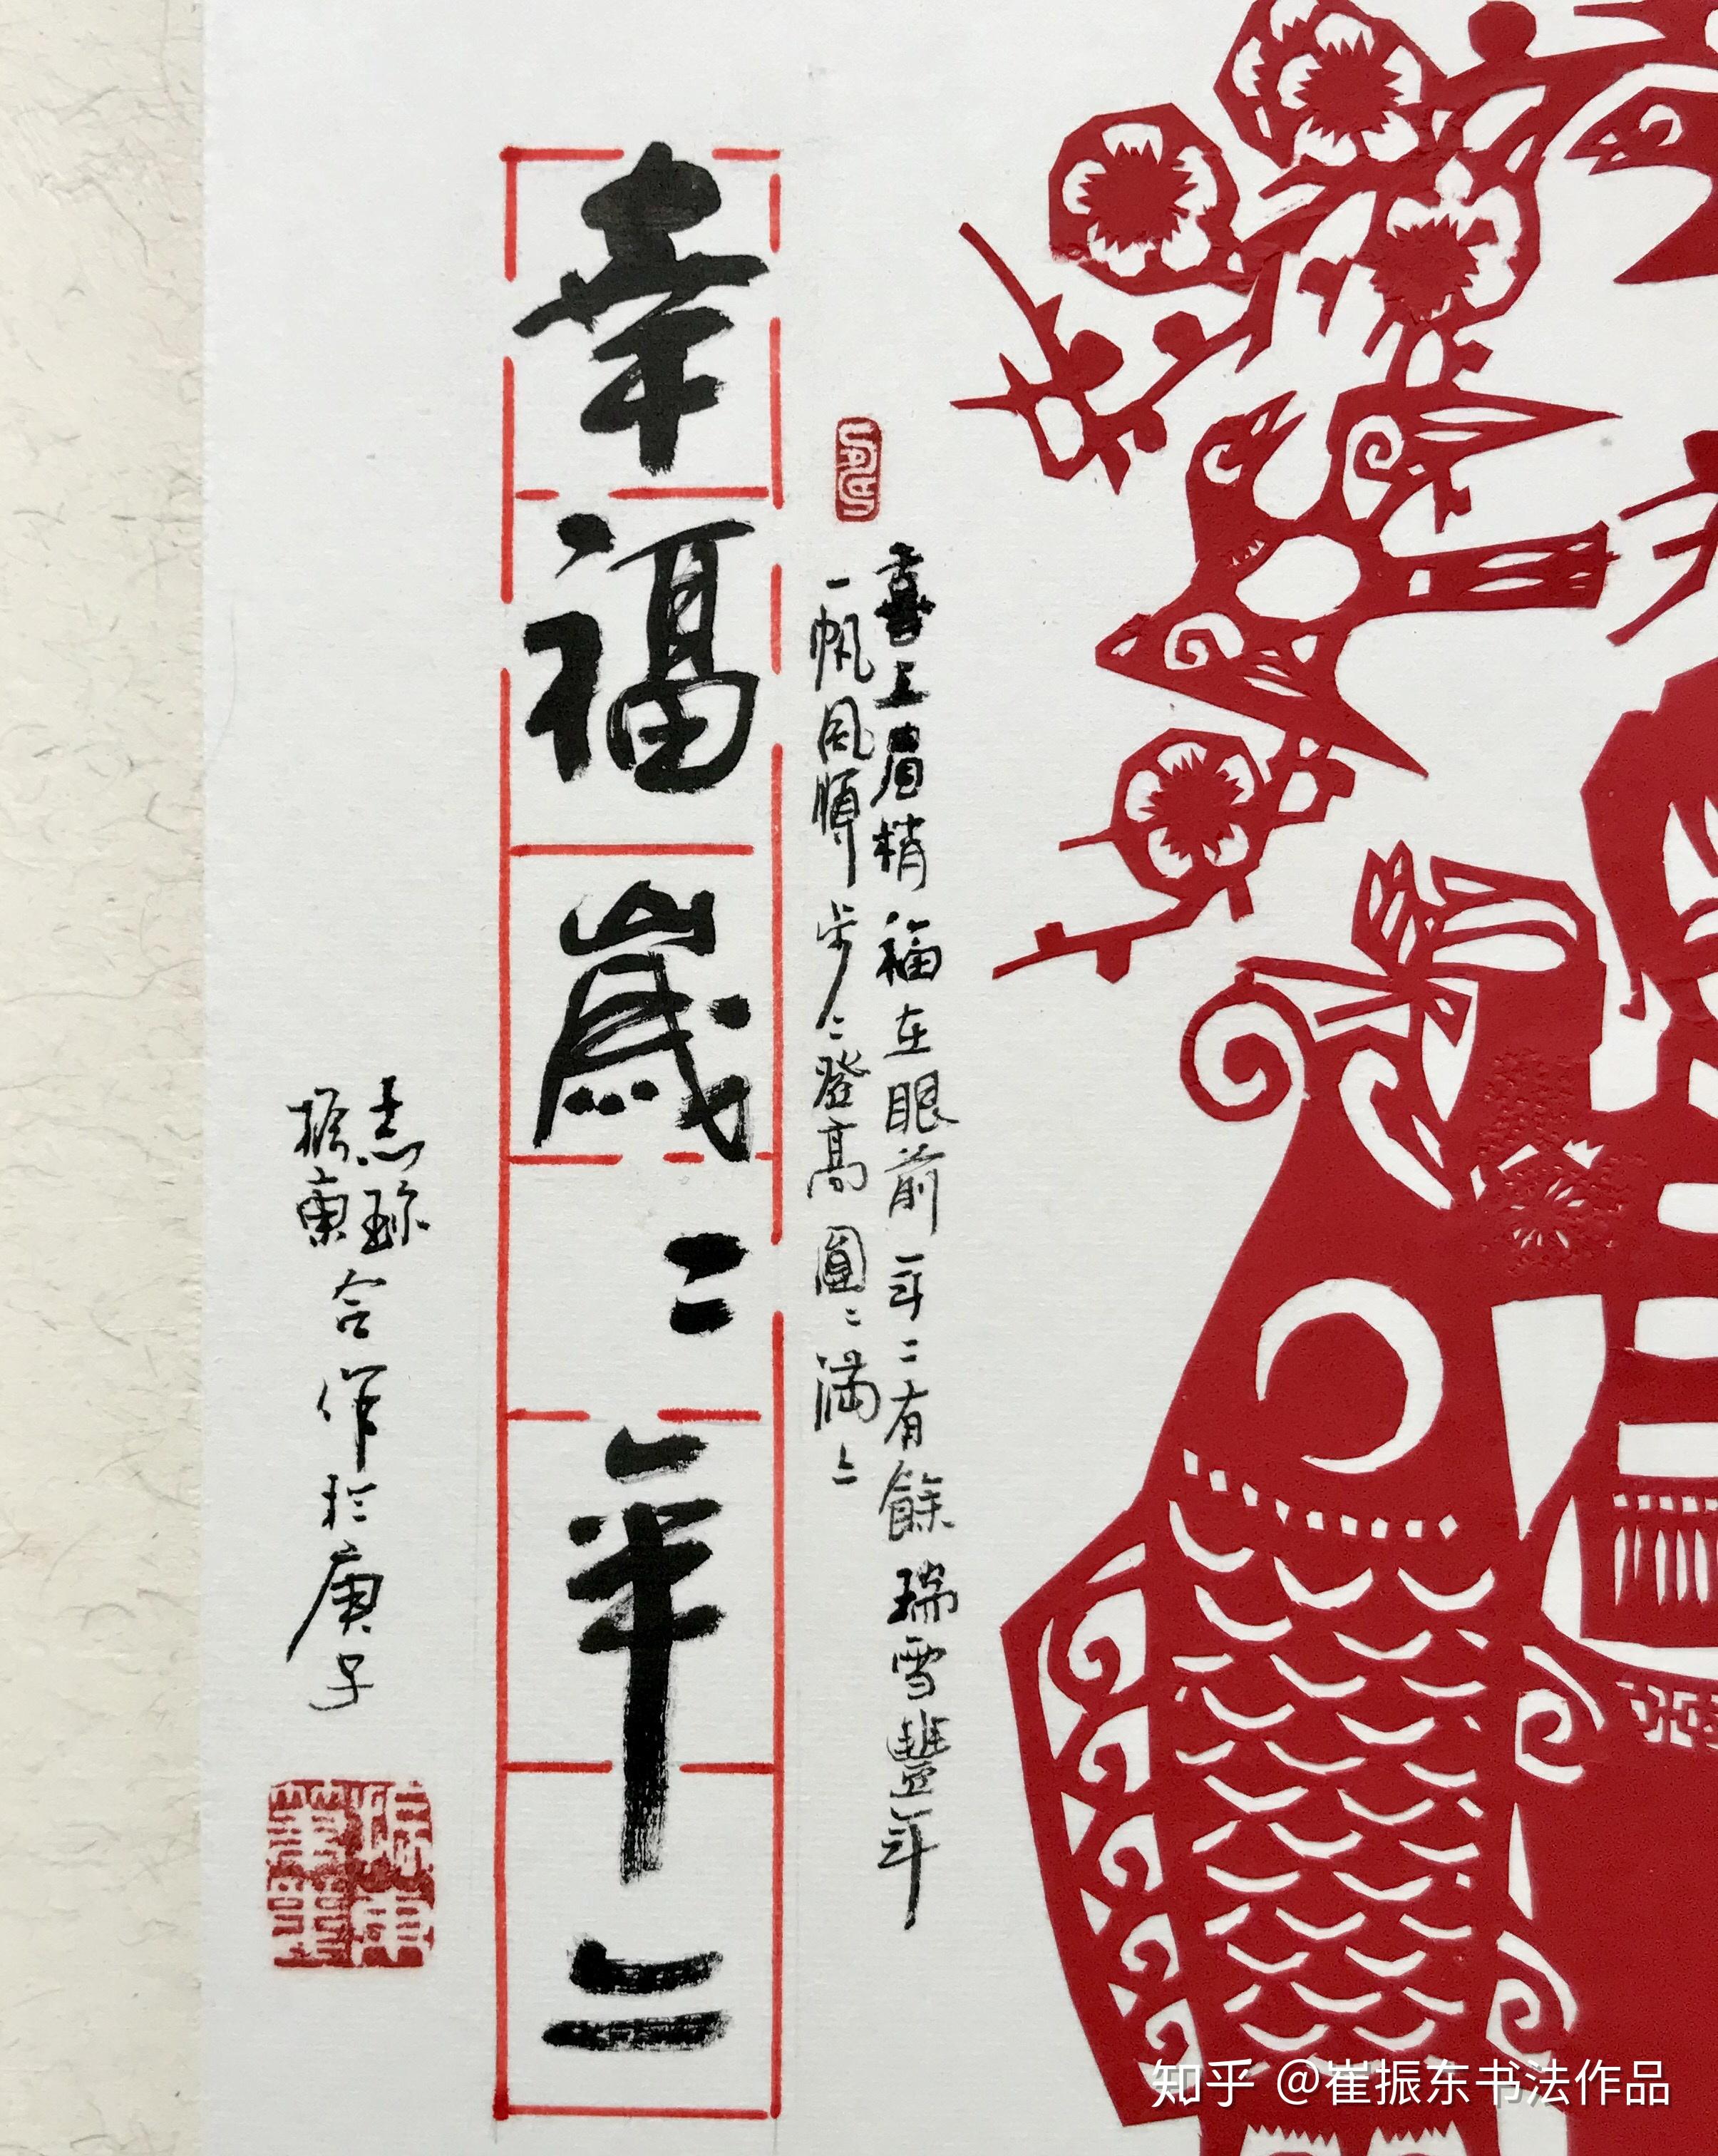 喜上眉梢福在眼前年二有餘瑞雪豐年
一帆風順步二登高圓二滿二
幸福歲二年二
志珎
振東合作於庚子
知乎 @崔振东书法作品